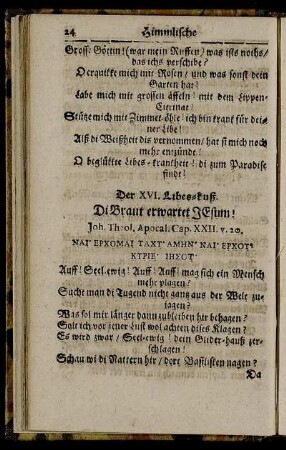 24 Himmlische
Gross: Göttin! (war mein Ruffen) was ists noths/
das ichs verschibe?
O erquikke mich mit Rosen/ und was sonst dein
Garten hat!
Labe mich mit grossen äffeln! mit dem Lippen-
Citrinat!
Stüze mich mit Zimmet-öhle! ich bin krank für dei-
ner Libe!
Alß di Weißheit dis vernommen/ hat si mich noch
mehr enzündt!
O beglükkte Libes-krankheit! di zum Paradise
findt!
Der XVI. Libes-kuß.
Di Braut erwartet JEsum!
Joh. Theol. Apocal. Cap. XXII. v. 20.
ΝΑΙ' ΕΡΧΟΜΑΙ ΤΑΧΥ' ΑΜΗΝ' ΝΑΙ' ΕΡΧΟΥ'
ΚΥΡΙΕ' ΙΗΣΟΥ'
Auff! Seel.ewig! Auff! Auff! mag sich ein Mensch
mehr plagen?
Suche man di Tugend nicht ganz aus der Welt zu-
jagen?
Was sol mir länger dann zubleiben hir behagen?
Solt ich vor jener Lust wol achten dises Klagen?
Es wird zwar/ Seel-ewig! dein Glider-hauß zer-
schlagen!
Schau wi di Nattern hir/ dort Basilisken nagen?
Da